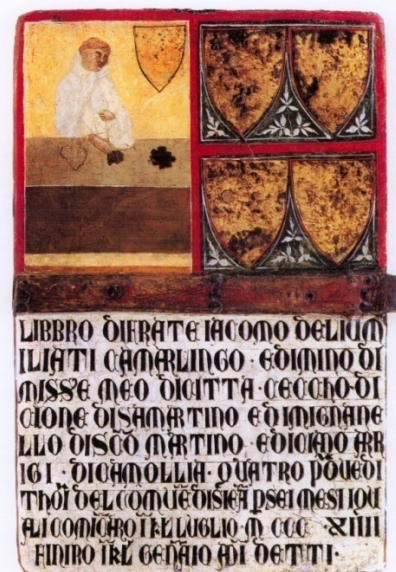 LIBBRO DIFRATE IACOMO DELIUM
ILIATI CAMARLINGO · EDIMINO DI
MISSE MEO DICITTA · CECCHO · DI
CIONE DISAMARTINO E DIMIGNANE
LLO DISCO MARTINO · EDICIANO ARR
IGI · DICAMOLLIA · QUATRO PDUEDI
THOI DEL COMUE DISIEA PSEI MESI IQU
ALI COMICIARO I KL LUGLIO M CCC XIIII
FINIRO I KL GENAIO ADI DETTI ·